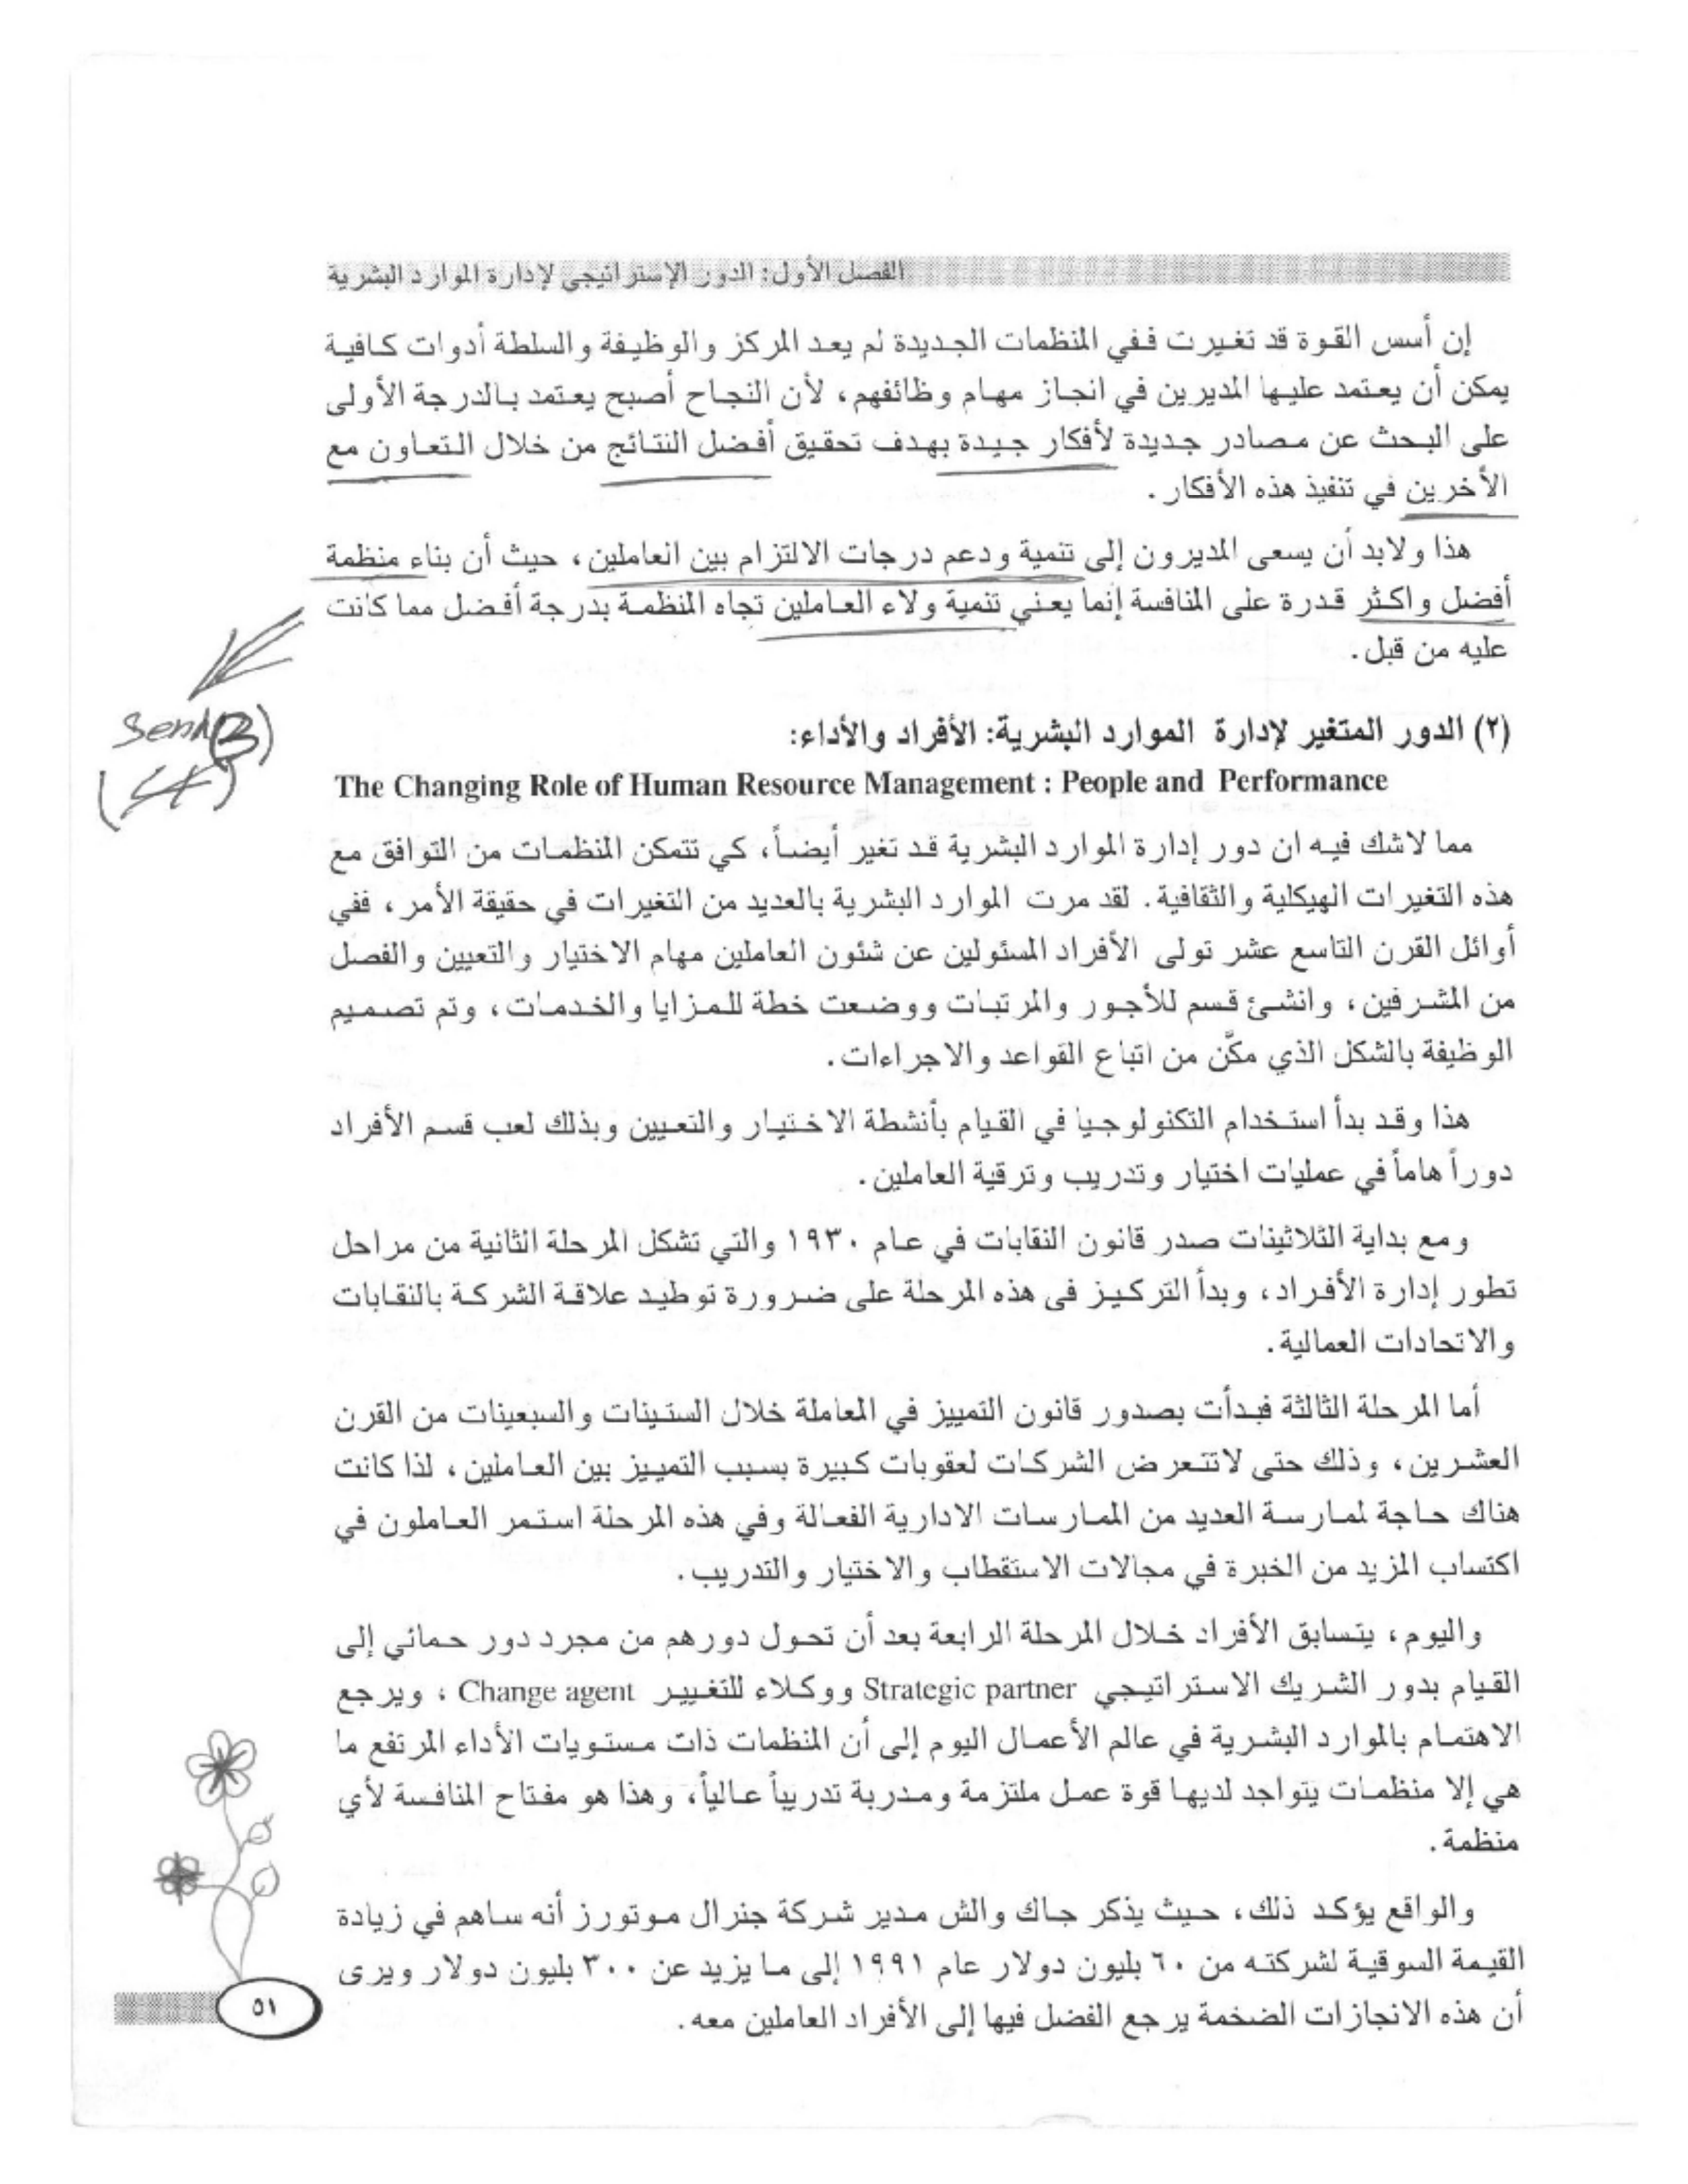 الفصل الأول: الدور الإستراتيجي لإدارة الموارد البشرية
إن أسس القوة قد تغيرت ففي المنظمات الجديدة لم يعد المركز والوظيفة والسلطة أدوات كافية
يمكن أن يعتمد عليها المديرين في انجاز مهام وظائفهم، لأن النجاح أصبح يعتمد بالدرجة الأولى
على البحث عن مصادر جديدة لأفكار جيدة بهدف تحقيق أفضل النتائج من خلال التعاون مع
الأخرين في تنفيذ هذه الأفكار.
هذا ولابد أن يسعى المديرون إلى تنمية ودعم درجات الالتزام بين العاملين، حيث أن بناء منظمة
أفضل واكثر قدرة على المنافسة إنما يعني تنمية ولاء العاملين تجاه المنظمة بدرجة أفضل مما كانت
عليه من قبل.
Send (3)
(4)
(٢) الدور المتغير لإدارة الموارد البشرية: الأفراد والأداء:
The Changing Role of Human Resource Management : People and Performance
مما لاشك فيه ان دور إدارة الموارد البشرية قد تغير أيضاً، كي تتمكن المنظمات من التوافق مع
هذه التغيرات الهيكلية والثقافية. لقد مرت الموارد البشرية بالعديد من التغيرات في حقيقة الأمر، ففي
أوائل القرن التاسع عشر تولى الأفراد المسئولين عن شئون العاملين مهام الاختيار والتعيين والفصل
من المشرفين، وانشئ قسم للأجور والمرتبات ووضعت خطة للمزايا والخدمات، وتم تصميم
الوظيفة بالشكل الذي مكّن من اتباع القواعد والاجراءات.
هذا وقد بدأ استخدام التكنولوجيا في القيام بأنشطة الاختيار والتعيين وبذلك لعب قسم الأفراد
دوراً هاماً في عمليات اختيار وتدريب وترقية العاملين.
ومع بداية الثلاثينات صدر قانون النقابات في عام ١٩٣٠ والتي تشكل المرحلة الثانية من مراحل
تطور إدارة الأفراد، وبدأ التركيز فى هذه المرحلة على ضرورة توطيد علاقة الشركة بالنقابات
والاتحادات العمالية.
أما المرحلة الثالثة فبدأت بصدور قانون التمييز في المعاملة خلال الستينات والسبعينات من القرن
العشرين، وذلك حتى لاتتعرض الشركات لعقوبات كبيرة بسبب التمييز بين العاملين، لذا كانت
هناك حاجة لممارسة العديد من الممارسات الادارية الفعالة وفي هذه المرحلة استمر العاملون في
اكتساب المزيد من الخبرة في مجالات الاستقطاب والاختيار والتدريب.
واليوم، يتسابق الأفراد خلال المرحلة الرابعة بعد أن تحول دورهم من مجرد دور حمائي إلى
القيام بدور الشريك الاستراتيجي Strategic partner ووكلاء للتغيير Change agent ، ويرجع
الاهتمام بالموارد البشرية في عالم الأعمال اليوم إلى أن المنظمات ذات مستويات الأداء المرتفع ما
هي إلا منظمات يتواجد لديها قوة عمل ملتزمة ومدربة تدريباً عالياً، وهذا هو مفتاح المنافسة لأي
منظمة.
والواقع يؤكد ذلك، حيث يذكر جاك والش مدير شركة جنرال موتورز أنه ساهم في زيادة
القيمة السوقية لشركته من ٦٠ بليون دولار عام ١٩٩١ إلى ما يزيد عن ٣٠٠ بليون دولار ويرى
أن هذه الانجازات الضخمة يرجع الفضل فيها إلى الأفراد العاملين معه.
٥١